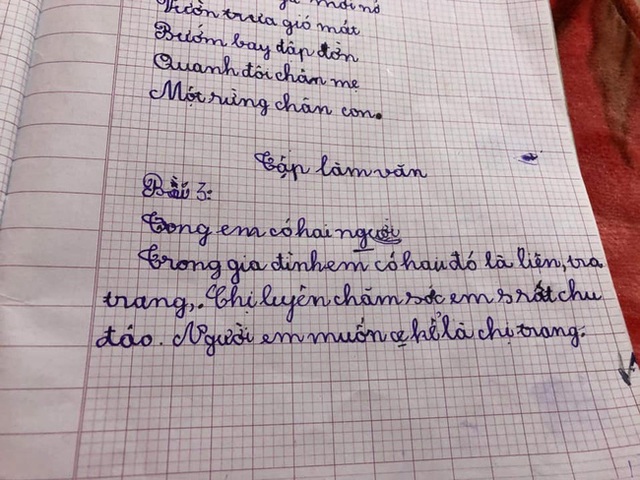 mới nó
Vườn trưa gió mát
Bướm bay dập dờn
Quanh đôi chân mẹ
Một rừng chân con.
Tập làm văn
Bài 3:
Trong em có hai người
Trong gia đình em có hau đó là liên, tra
trang, Chị luyên chăm sóc em srất chu
đáo. Người em muốn cẹ kể là chị trang.